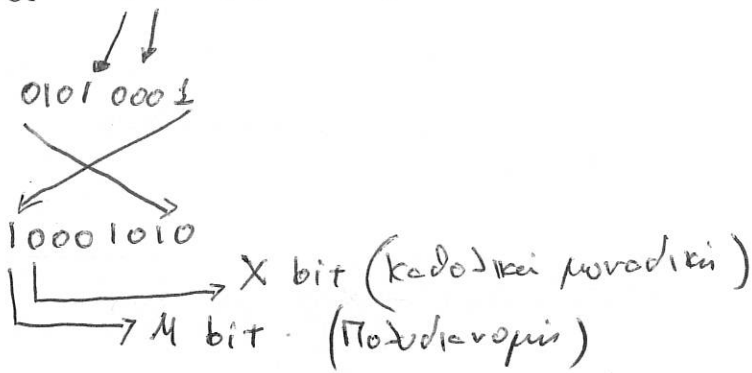 0101 0001
10001010
X bit (καθολικά μοναδική)
M bit. (Πολυδιανομής)